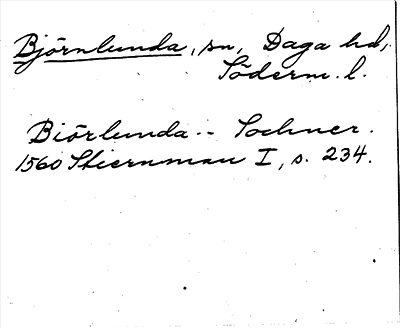 Björnlunda, sn, Daga hd,
Söderm. l.
Biörlunda -- Sochner.
1560 Stiernman I, s. 234.